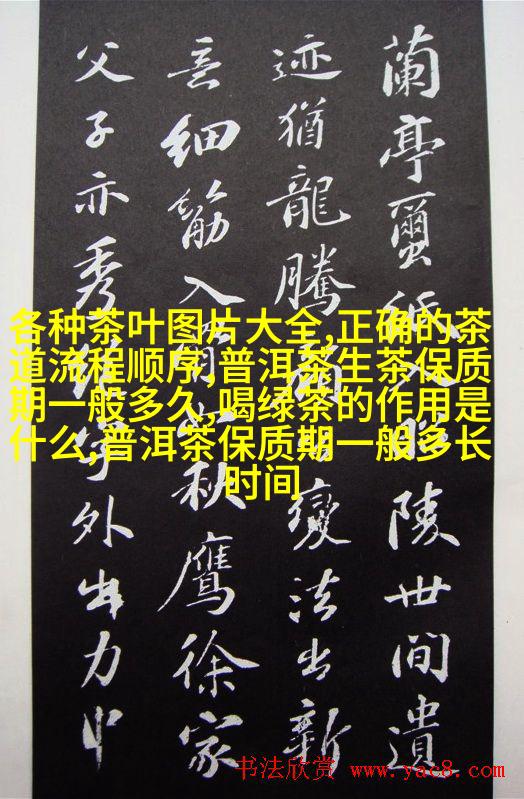 蘭亭蠒紙入昭陵世間遺
迹猶龍騰變法出新
意細筋入骨如秋鷹徐家
父子亦秀絕字外出力中
各种茶叶图片大全,正确的茶
道流程顺序,普洱茶生茶保质
期一般多久,喝绿茶的作用是
什么,普洱茶保质期一般多长
时间
书法欣赏 www.yac8.com